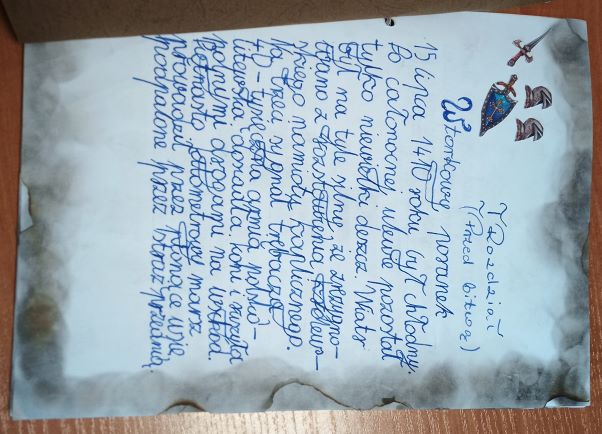 I Rozdział
(Przed bitwą)
Wtorkowy poranek
15 lipca 1410 roku był chłodny.
Po całonocnej ulewie pozostał
tylko niewielki deszcz. Wiatr
był na tyle silny, że zrezygno-
wano z rozstawienia królew-
skiego namiotu kaplicznego.
Na trzeci sygnał trębacza
40-tysięczna armia polsko-
litewska dosiadła koni i ruszyła
polnymi drogami na wschód.
Piętnasto kilometrowy marsz
prowadził przez płonące wsie,
podpalone przez straż przednią.